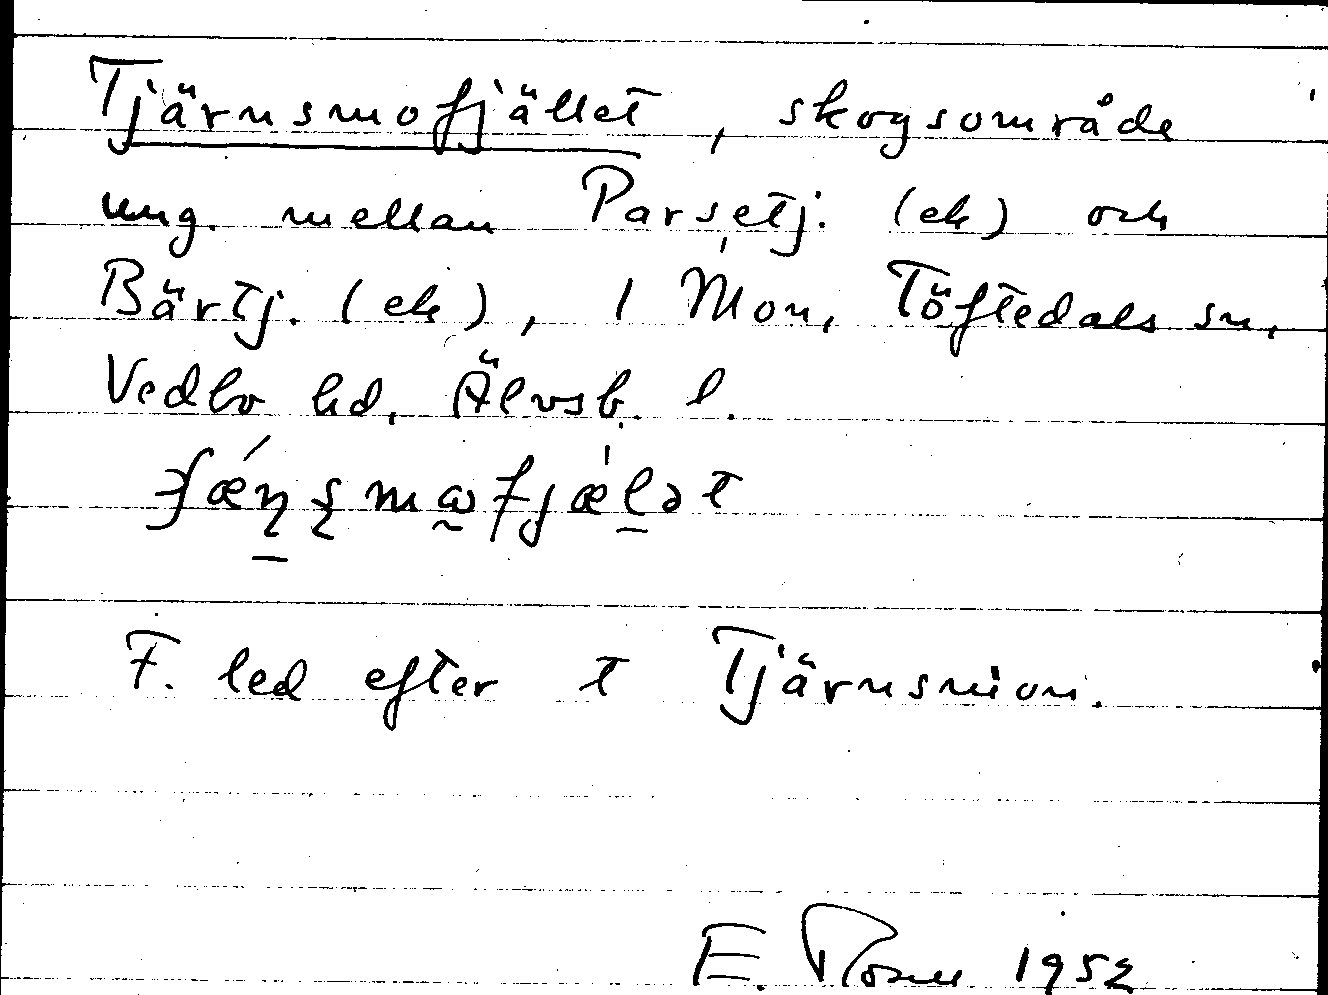 Tjärnsmofjället, skogsområde
ung. mellan Parsetj. (ek) och
Bärtj. (ek), i Mon, Töftedals sn,
Vedbo hd, Älvsb. l.
F. led efter t Tjärnsmon.
E. 1952